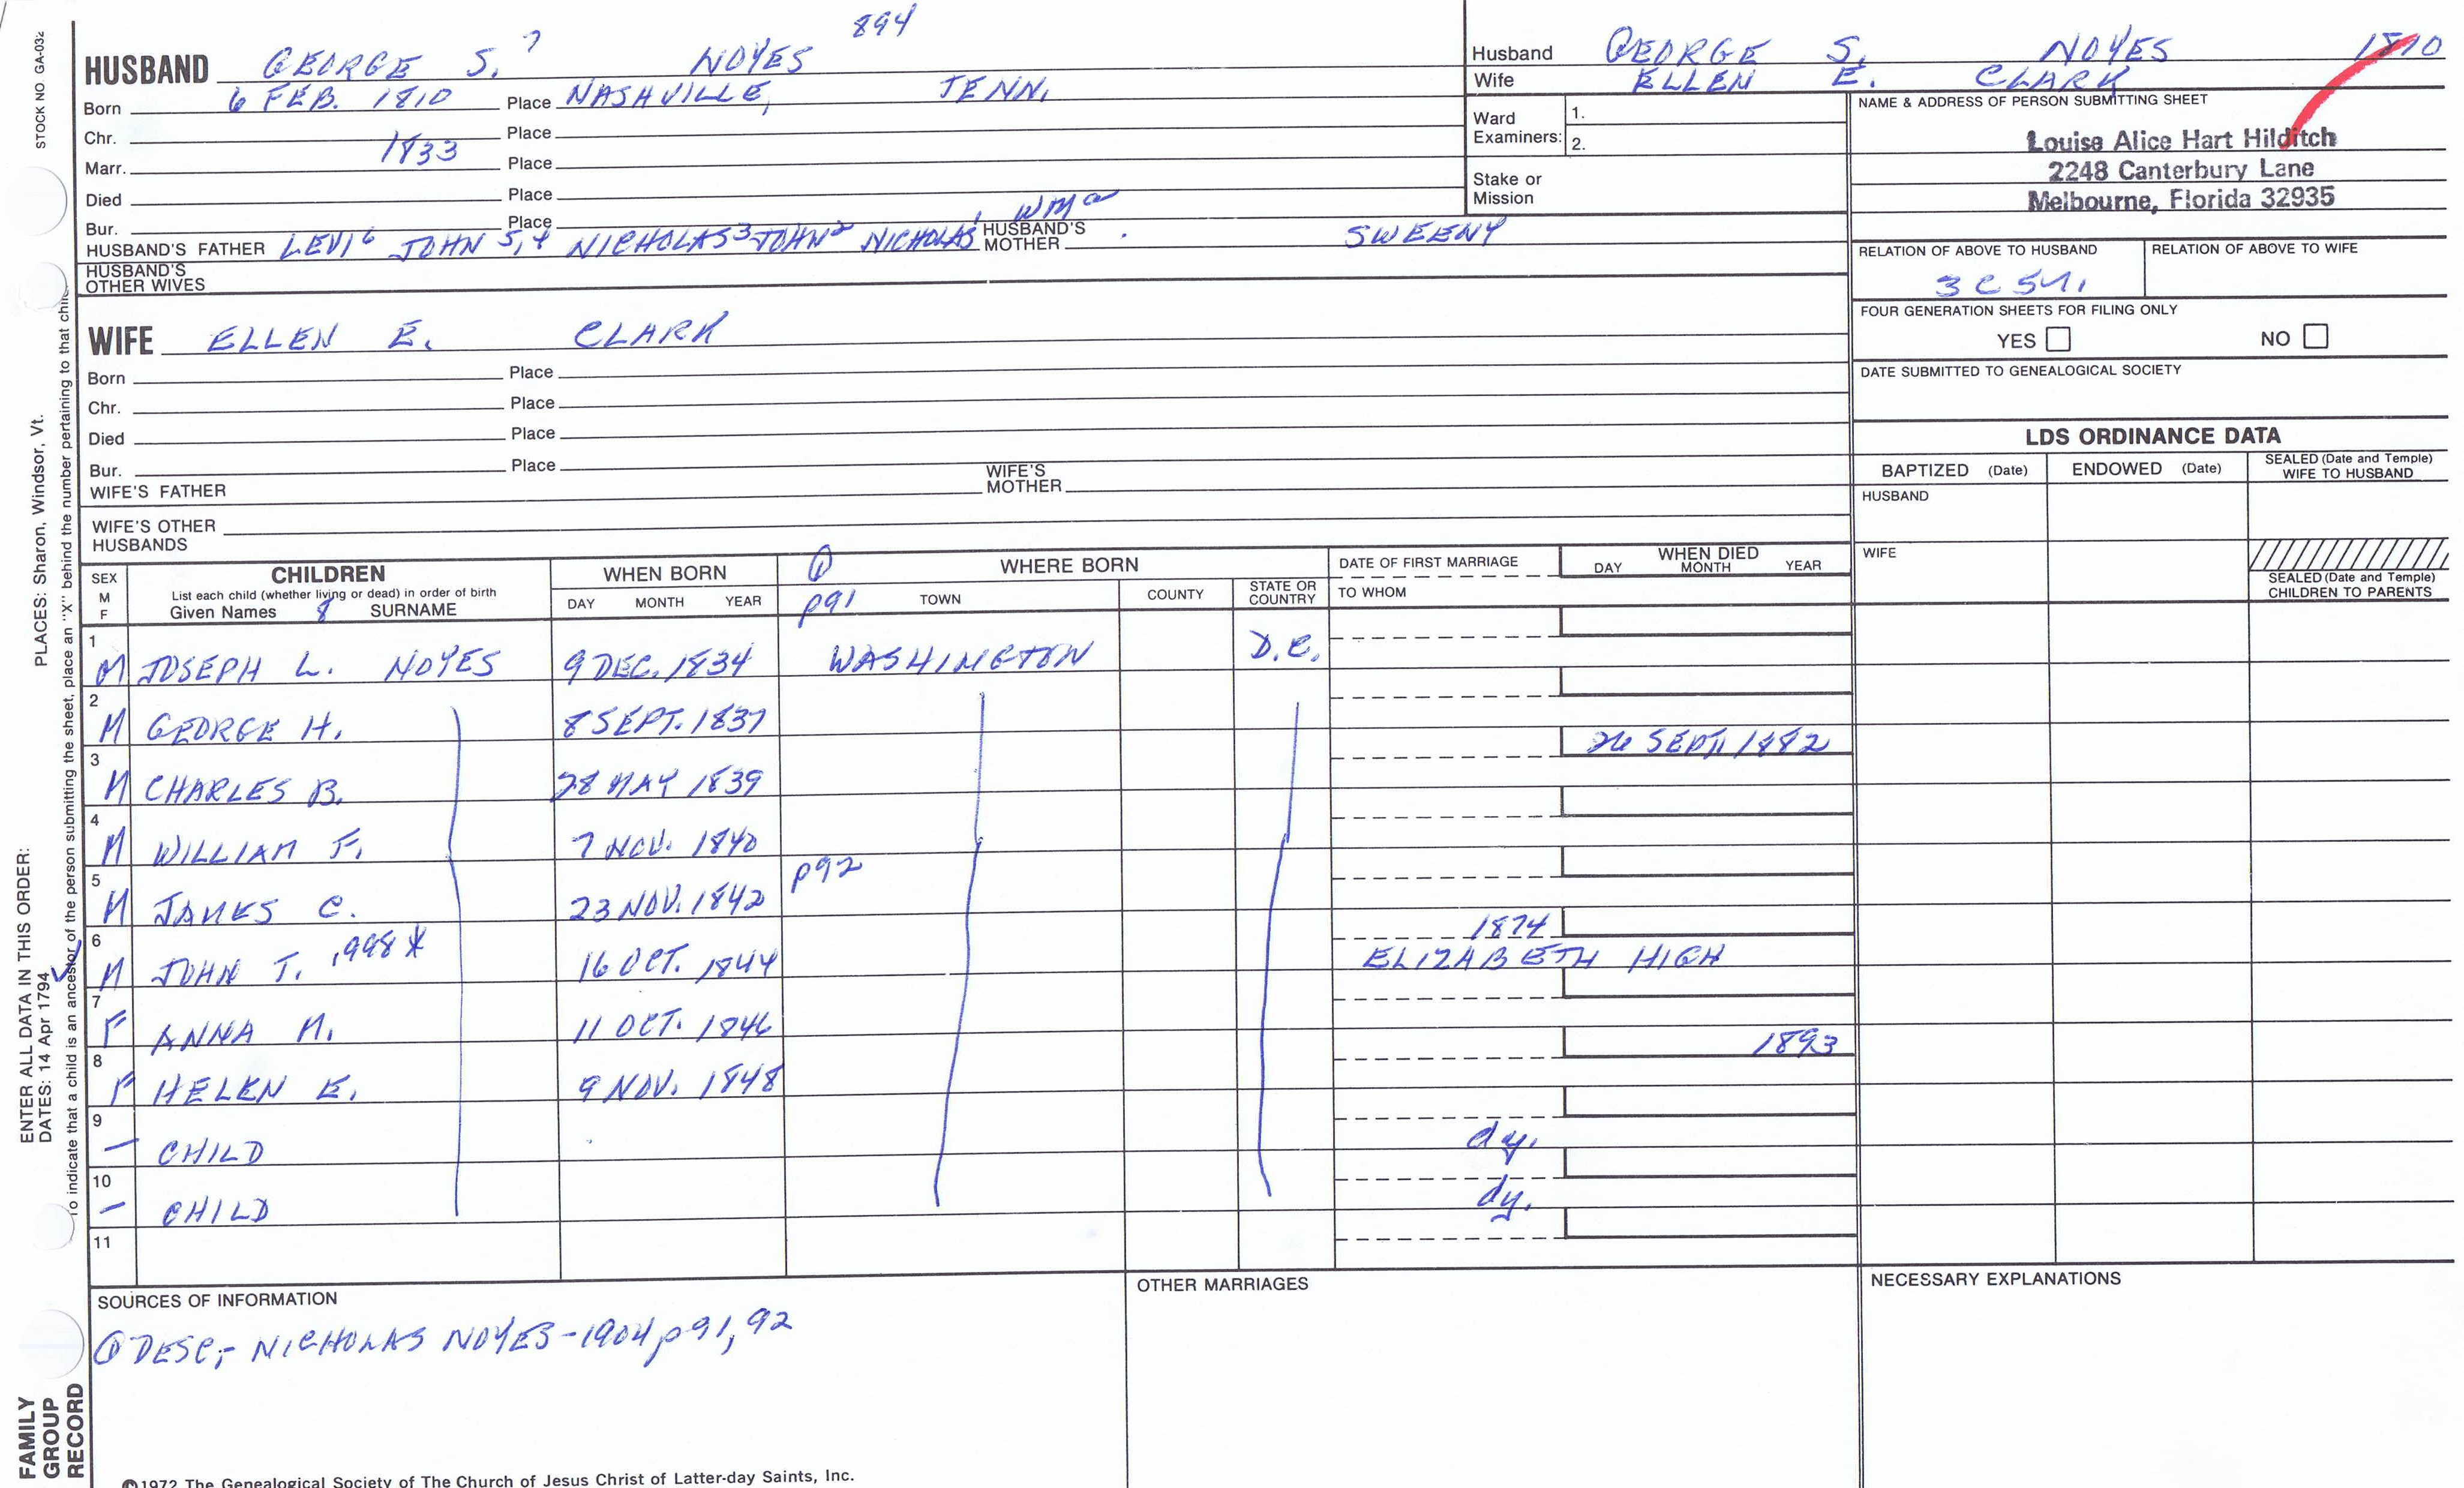 894
HUSBAND GEORGE S.7 NOYES
Born 6 FEB. 1810 Place NASHVILLE, TENN.
Chr. Place
Marr. 1833 Place
Died Place
Bur. Place
HUSBAND'S FATHER LEVI6 JOHN 5,4 NICHOLAS3 JOHN2 NICHOLAS1 WMa HUSBAND'S MOTHER SWEENY
HUSBAND'S OTHER WIVES
WIFE ELLEN E. CLARK
Born Place
Chr. Place
Died Place
Bur. Place
WIFE'S FATHER WIFE'S MOTHER
WIFE'S OTHER HUSBANDS
Husband GEORGE S. NOYES 1810
Wife ELLEN E. CLARK
Ward Examiners: 1.
2.
Stake or Mission
NAME & ADDRESS OF PERSON SUBMITTING SHEET
Louise Alice Hart Hilditch
2248 Canterbury Lane
Melbourne, Florida 32935
RELATION OF ABOVE TO HUSBAND RELATION OF ABOVE TO WIFE
3C5
FOUR GENERATION SHEETS FOR FILING ONLY
YES NO
DATE SUBMITTED TO GENEALOGICAL SOCIETY
LDS ORDINANCE DATA
BAPTIZED (Date) ENDOWED (Date) SEALED (Date and Temple) WIFE TO HUSBAND
HUSBAND
WIFE
SEALED (Date and Temple) CHILDREN TO PARENTS
SEX M F
CHILDREN
List each child (whether living or dead) in order of birth
Given Names 8 SURNAME
WHEN BORN
DAY MONTH YEAR
① WHERE BORN
p91 TOWN COUNTY STATE OR COUNTRY
DATE OF FIRST MARRIAGE
TO WHOM
WHEN DIED
DAY MONTH YEAR
1 M JOSEPH L. NOYES 9 DEC. 1834 WASHINGTON D.C.
2 M GEORGE H. 8 SEPT. 1837
3 M CHARLES B. 28 MAY 1839 26 SEPT. 1882
4 M WILLIAM F. 7 NOV. 1840
5 M JAMES C. 23 NOV. 1842 p92
6 M JOHN T. ,998* 16 OCT. 1844 1874 ELIZABETH HIGH
7 F ANNA M. 11 OCT. 1846
8 F HELEN E. 9 NOV. 1848 1893
9 – CHILD dy.
10 – CHILD dy.
11
SOURCES OF INFORMATION
① DESC;- NICHOLAS NOYES-1904 p91,92
OTHER MARRIAGES
NECESSARY EXPLANATIONS
©1972 The Genealogical Society of The Church of Jesus Christ of Latter-day Saints, Inc.
STOCK NO GA-032
PLACES: Sharon, Windsor, Vt.
ENTER ALL DATA IN THIS ORDER:
DATES: 14 Apr 1794
To indicate that a child is an ancestor of the person submitting the sheet, place an "X" behind the number pertaining to that child.
FAMILY GROUP RECORD